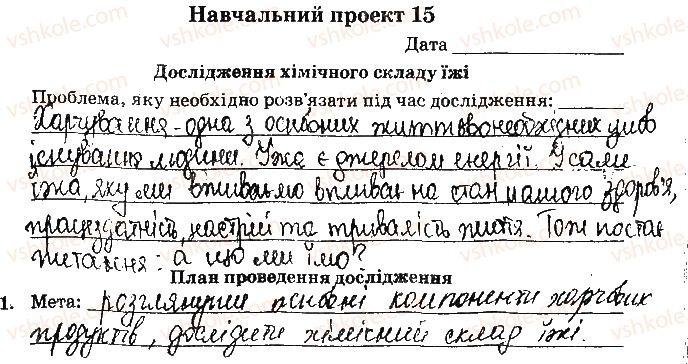 Навчальний проект 15
Дата
Дослідження хімічного складу їжі
Проблема, яку необхідно розв'язати під час дослідження:
Харчування - одна з основних життєвонеобхідних умов
існування людини. Їжа є джерелом енергії. І саме
їжа, яку ми вживаємо впливає на стан нашого здоров'я,
працездатність, настрій та тривалість життя. Тож постає
питання: а що ми їмо?
План проведення дослідження
1. Мета: розглянути основні компоненти харчових
продуктів, дослідити хімічний склад їжі.